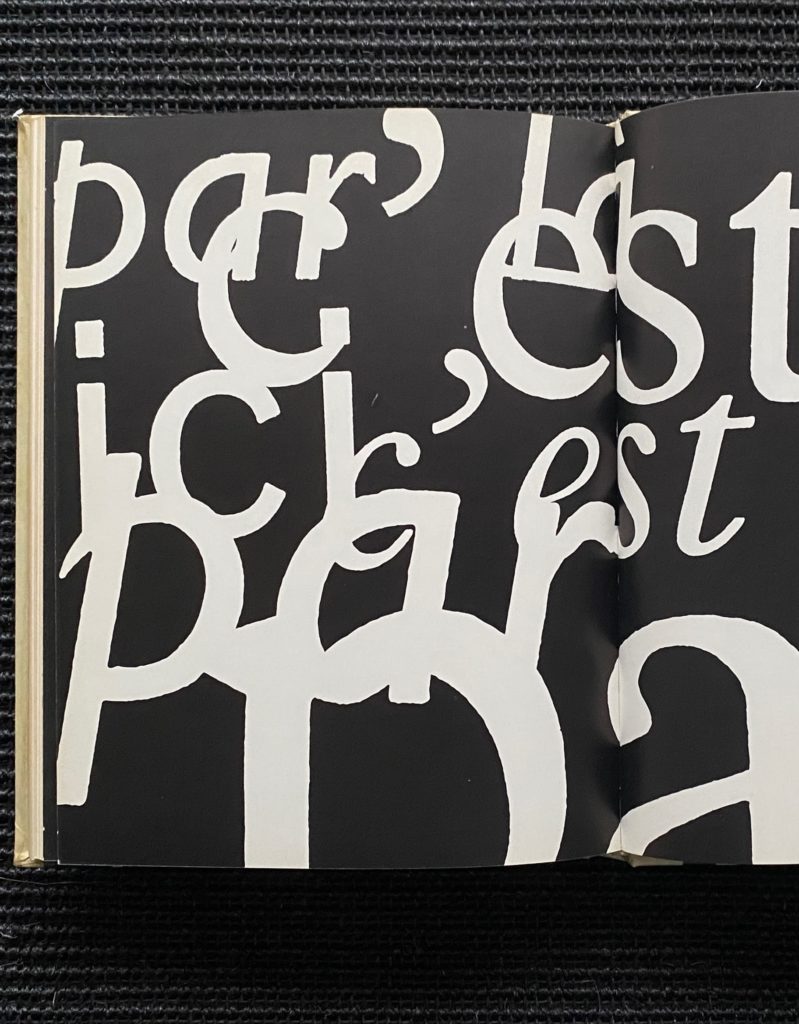 par
c'est
ici
c'est
par
pa